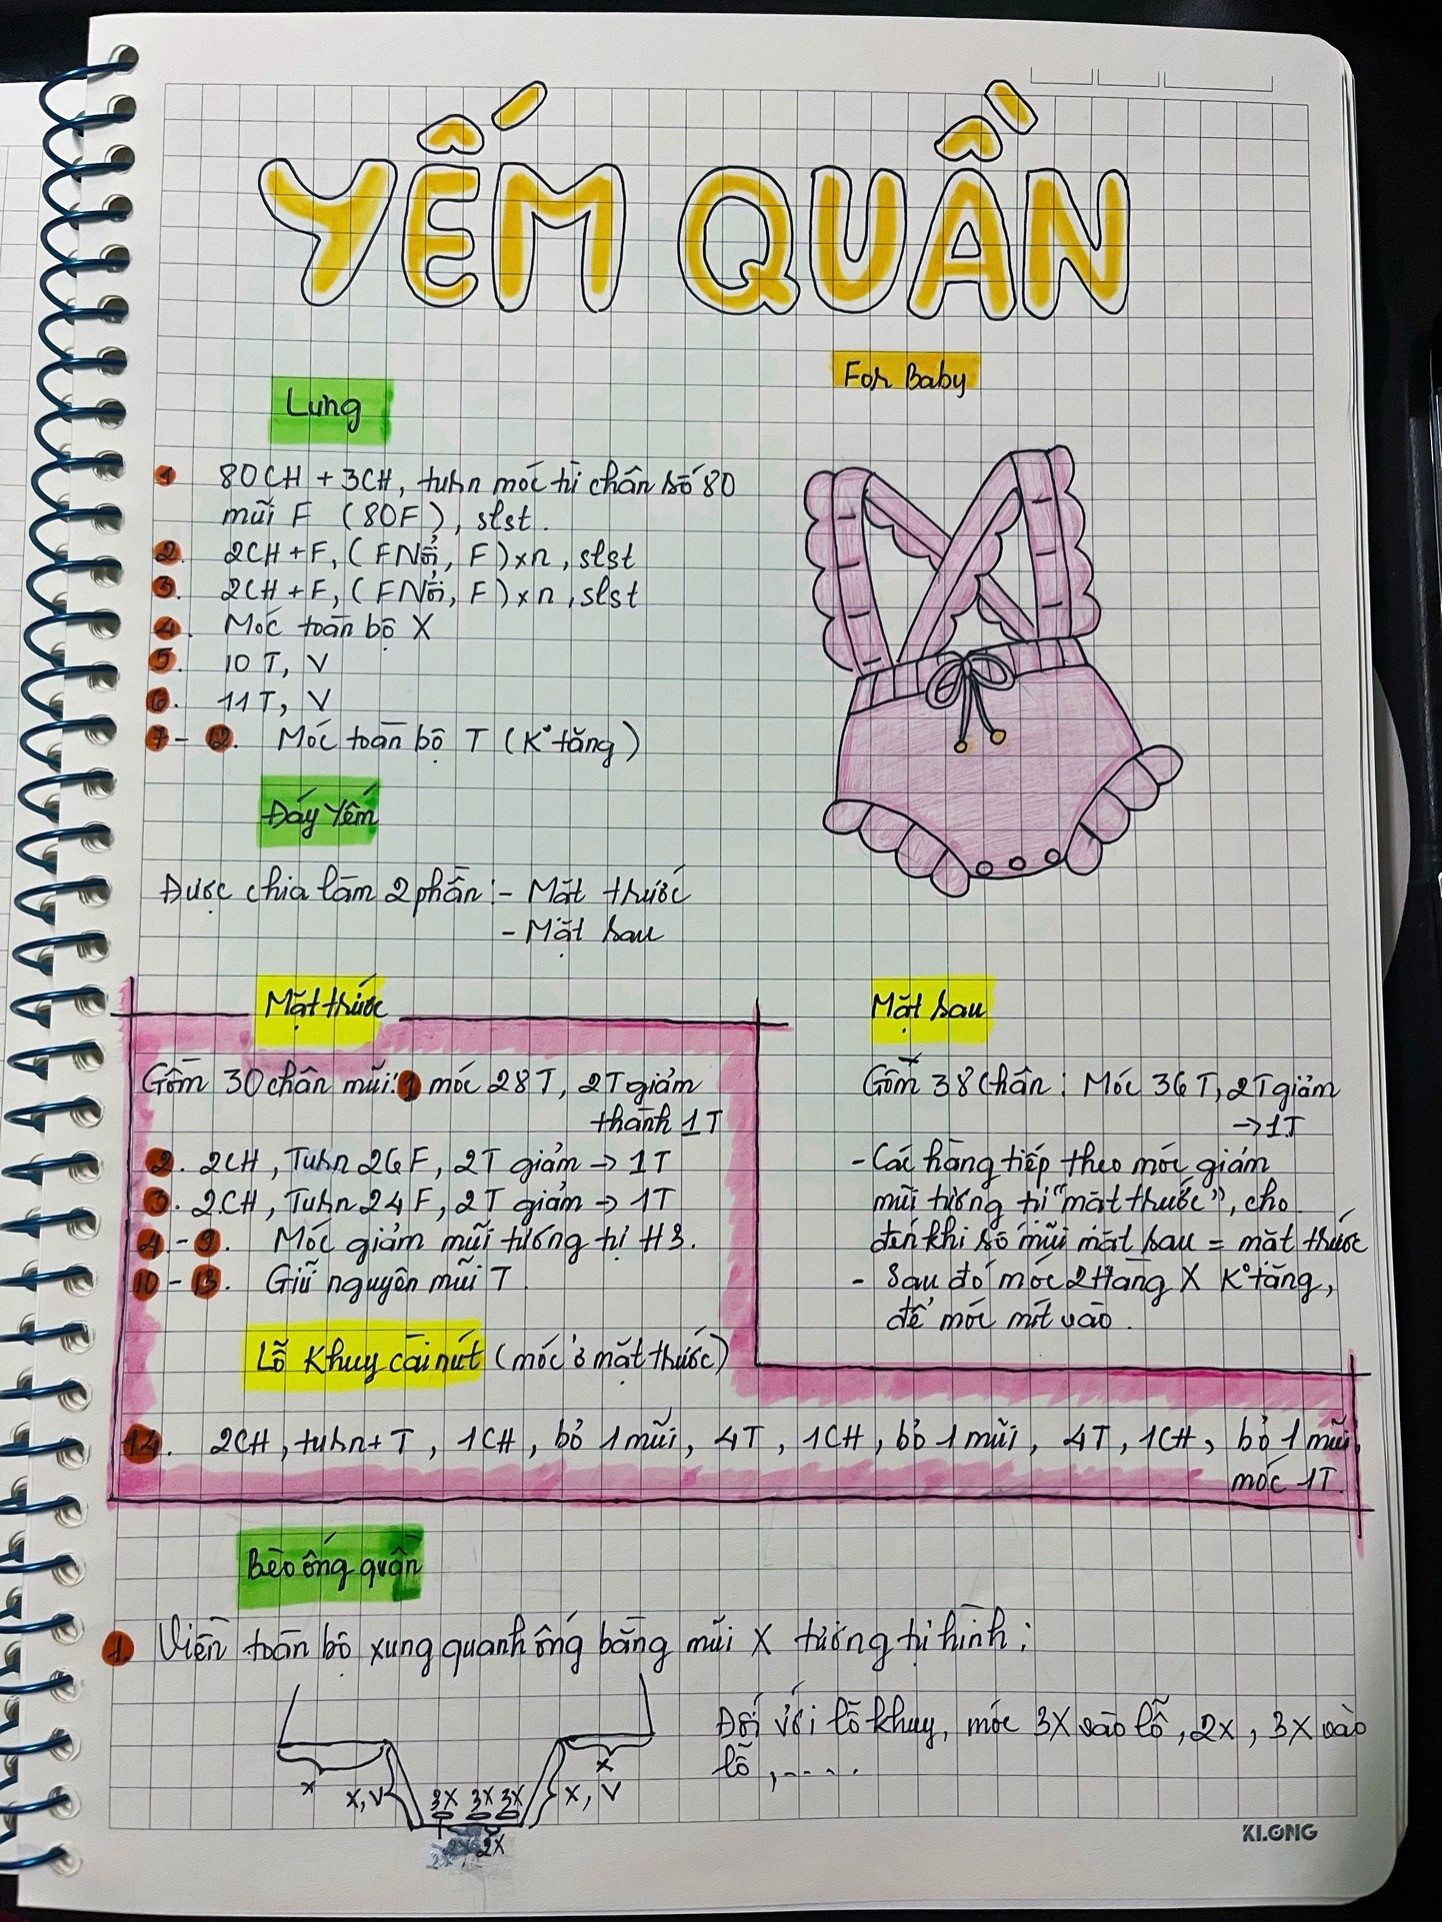 YẾM QUẦN
For Baby
Lưng
1 80CH + 3CH, turn móc từ chân số 80
mũi F (80F), slst.
2. 2CH + F, (FNổi, F)xn, slst
3. 2CH + F, (FNổi, F)xn, slst
4. Móc toàn bộ X
5. 10 T, V
6. 11T, V
7 - 12. Móc toàn bộ T (K° tăng)
Đáy Yếm
Được chia làm 2 phần: - Mặt trước
- Mặt sau
Mặt trước
Gồm 30 chân mũi: 1 móc 28T, 2T giảm
thành 1T
2. 2CH, Turn 26F, 2T giảm → 1T
3. 2CH, Turn 24F, 2T giảm → 1T
4. - 9. Móc giảm mũi tương tự H3.
10 - 13. Giữ nguyên mũi T.
Lỗ Khuy cài nút (móc ở mặt trước)
14. 2CH, turn + T, 1CH, bỏ 1 mũi, 4T, 1CH, bỏ 1 mũi, 4T, 1CH, bỏ 1 mũi,
móc 1T.
Mặt sau
Gồm 38 chân: Móc 36T, 2T giảm
→ 1T
- Các hàng tiếp theo móc giảm
mũi tương tự "mặt trước", cho
đến khi số mũi mặt sau = mặt trước
- Sau đó móc 2 Hàng X K° tăng,
để móc nút vào.
Bèo ống quần
1. Viền toàn bộ xung quanh ống bằng mũi X tương tự hình:
Đối với lỗ khuy, móc 3X vào lỗ, 2X, 3X vào
lỗ, .....
X
X
X, V
3X 3X 3X
X, V
2X
KLONG